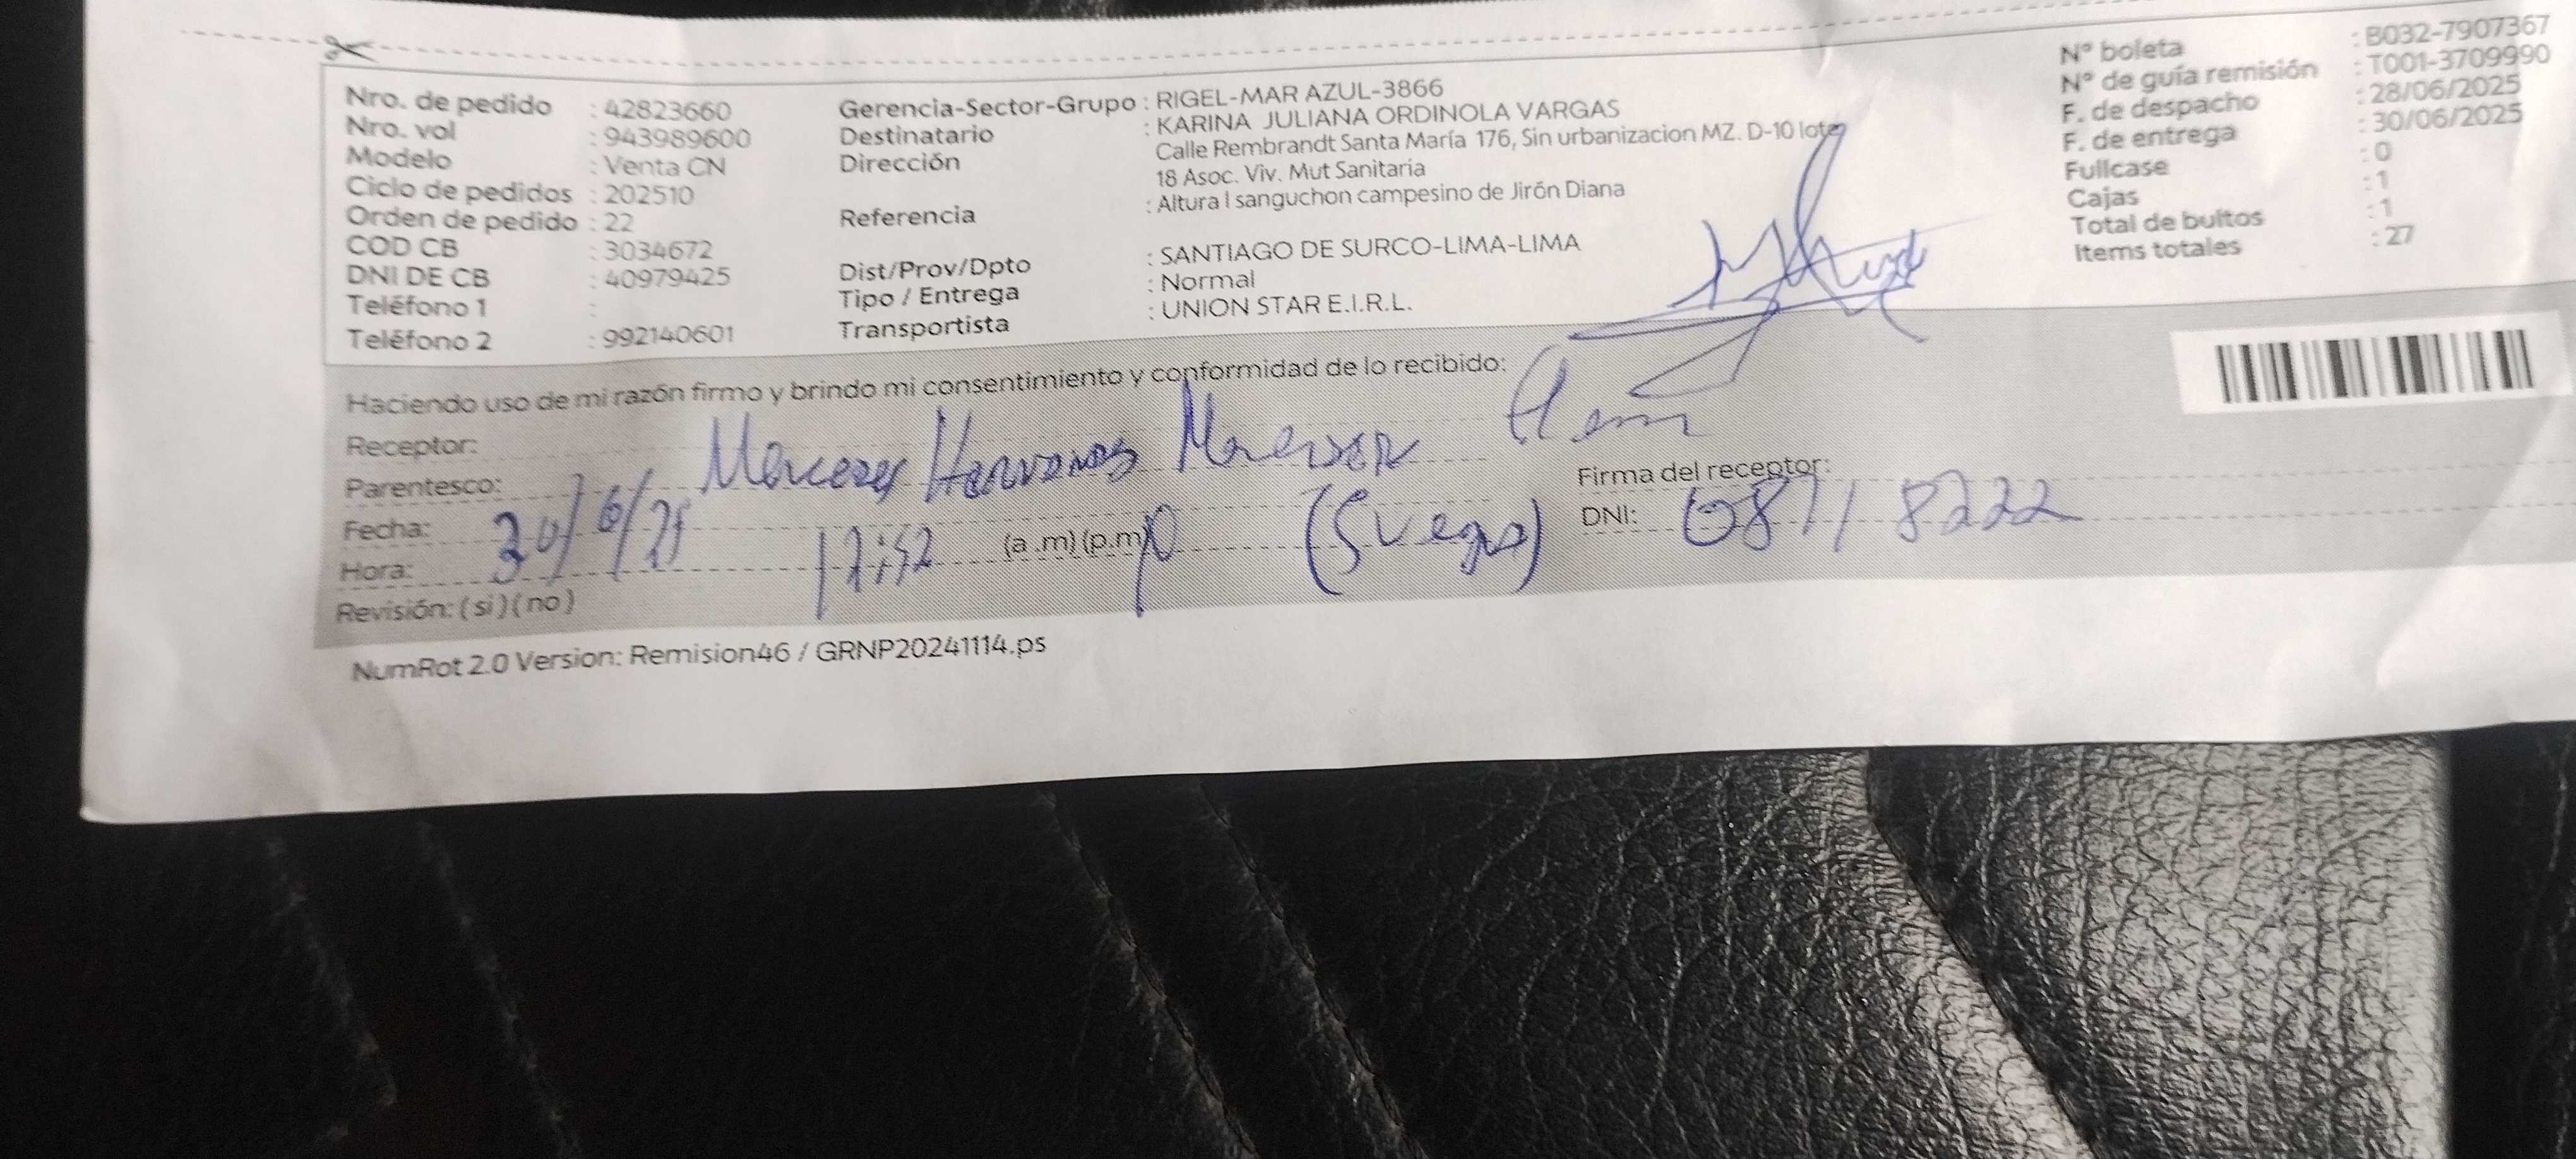 Nro. de pedido : 42823660 Gerencia-Sector-Grupo : RIGEL-MAR AZUL-3866 N° boleta : B032-7907367
Nro. vol : 943989600 Destinatario : KARINA JULIANA ORDINOLA VARGAS N° de guía remisión : T001-3709990
Modelo : Venta CN Dirección Calle Rembrandt Santa María 176, Sin urbanizacion MZ. D-10 lote F. de despacho : 28/06/2025
18 Asoc. Viv. Mut Sanitaria F. de entrega : 30/06/2025
Ciclo de pedidos : 202510 Referencia : Altura l sanguchon campesino de Jirón Diana Fullcase : 0
Orden de pedido : 22 Cajas : 1
COD CB : 3034672 Dist/Prov/Dpto : SANTIAGO DE SURCO-LIMA-LIMA Total de bultos : 1
DNI DE CB : 40979425 Tipo / Entrega : Normal Items totales : 27
Teléfono 1 : Transportista : UNION STAR E.I.R.L.
Teléfono 2 : 992140601
Haciendo uso de mi razón firmo y brindo mi consentimiento y conformidad de lo recibido:
Receptor:
Parentesco: (Suegra) Firma del receptor:
Fecha: 30/6/25 DNI: 08718222
Hora: 17:52 (a .m) (p.m) p
Revisión: ( si ) ( no )
NumRot 2.0 Version: Remision46 / GRNP20241114.ps